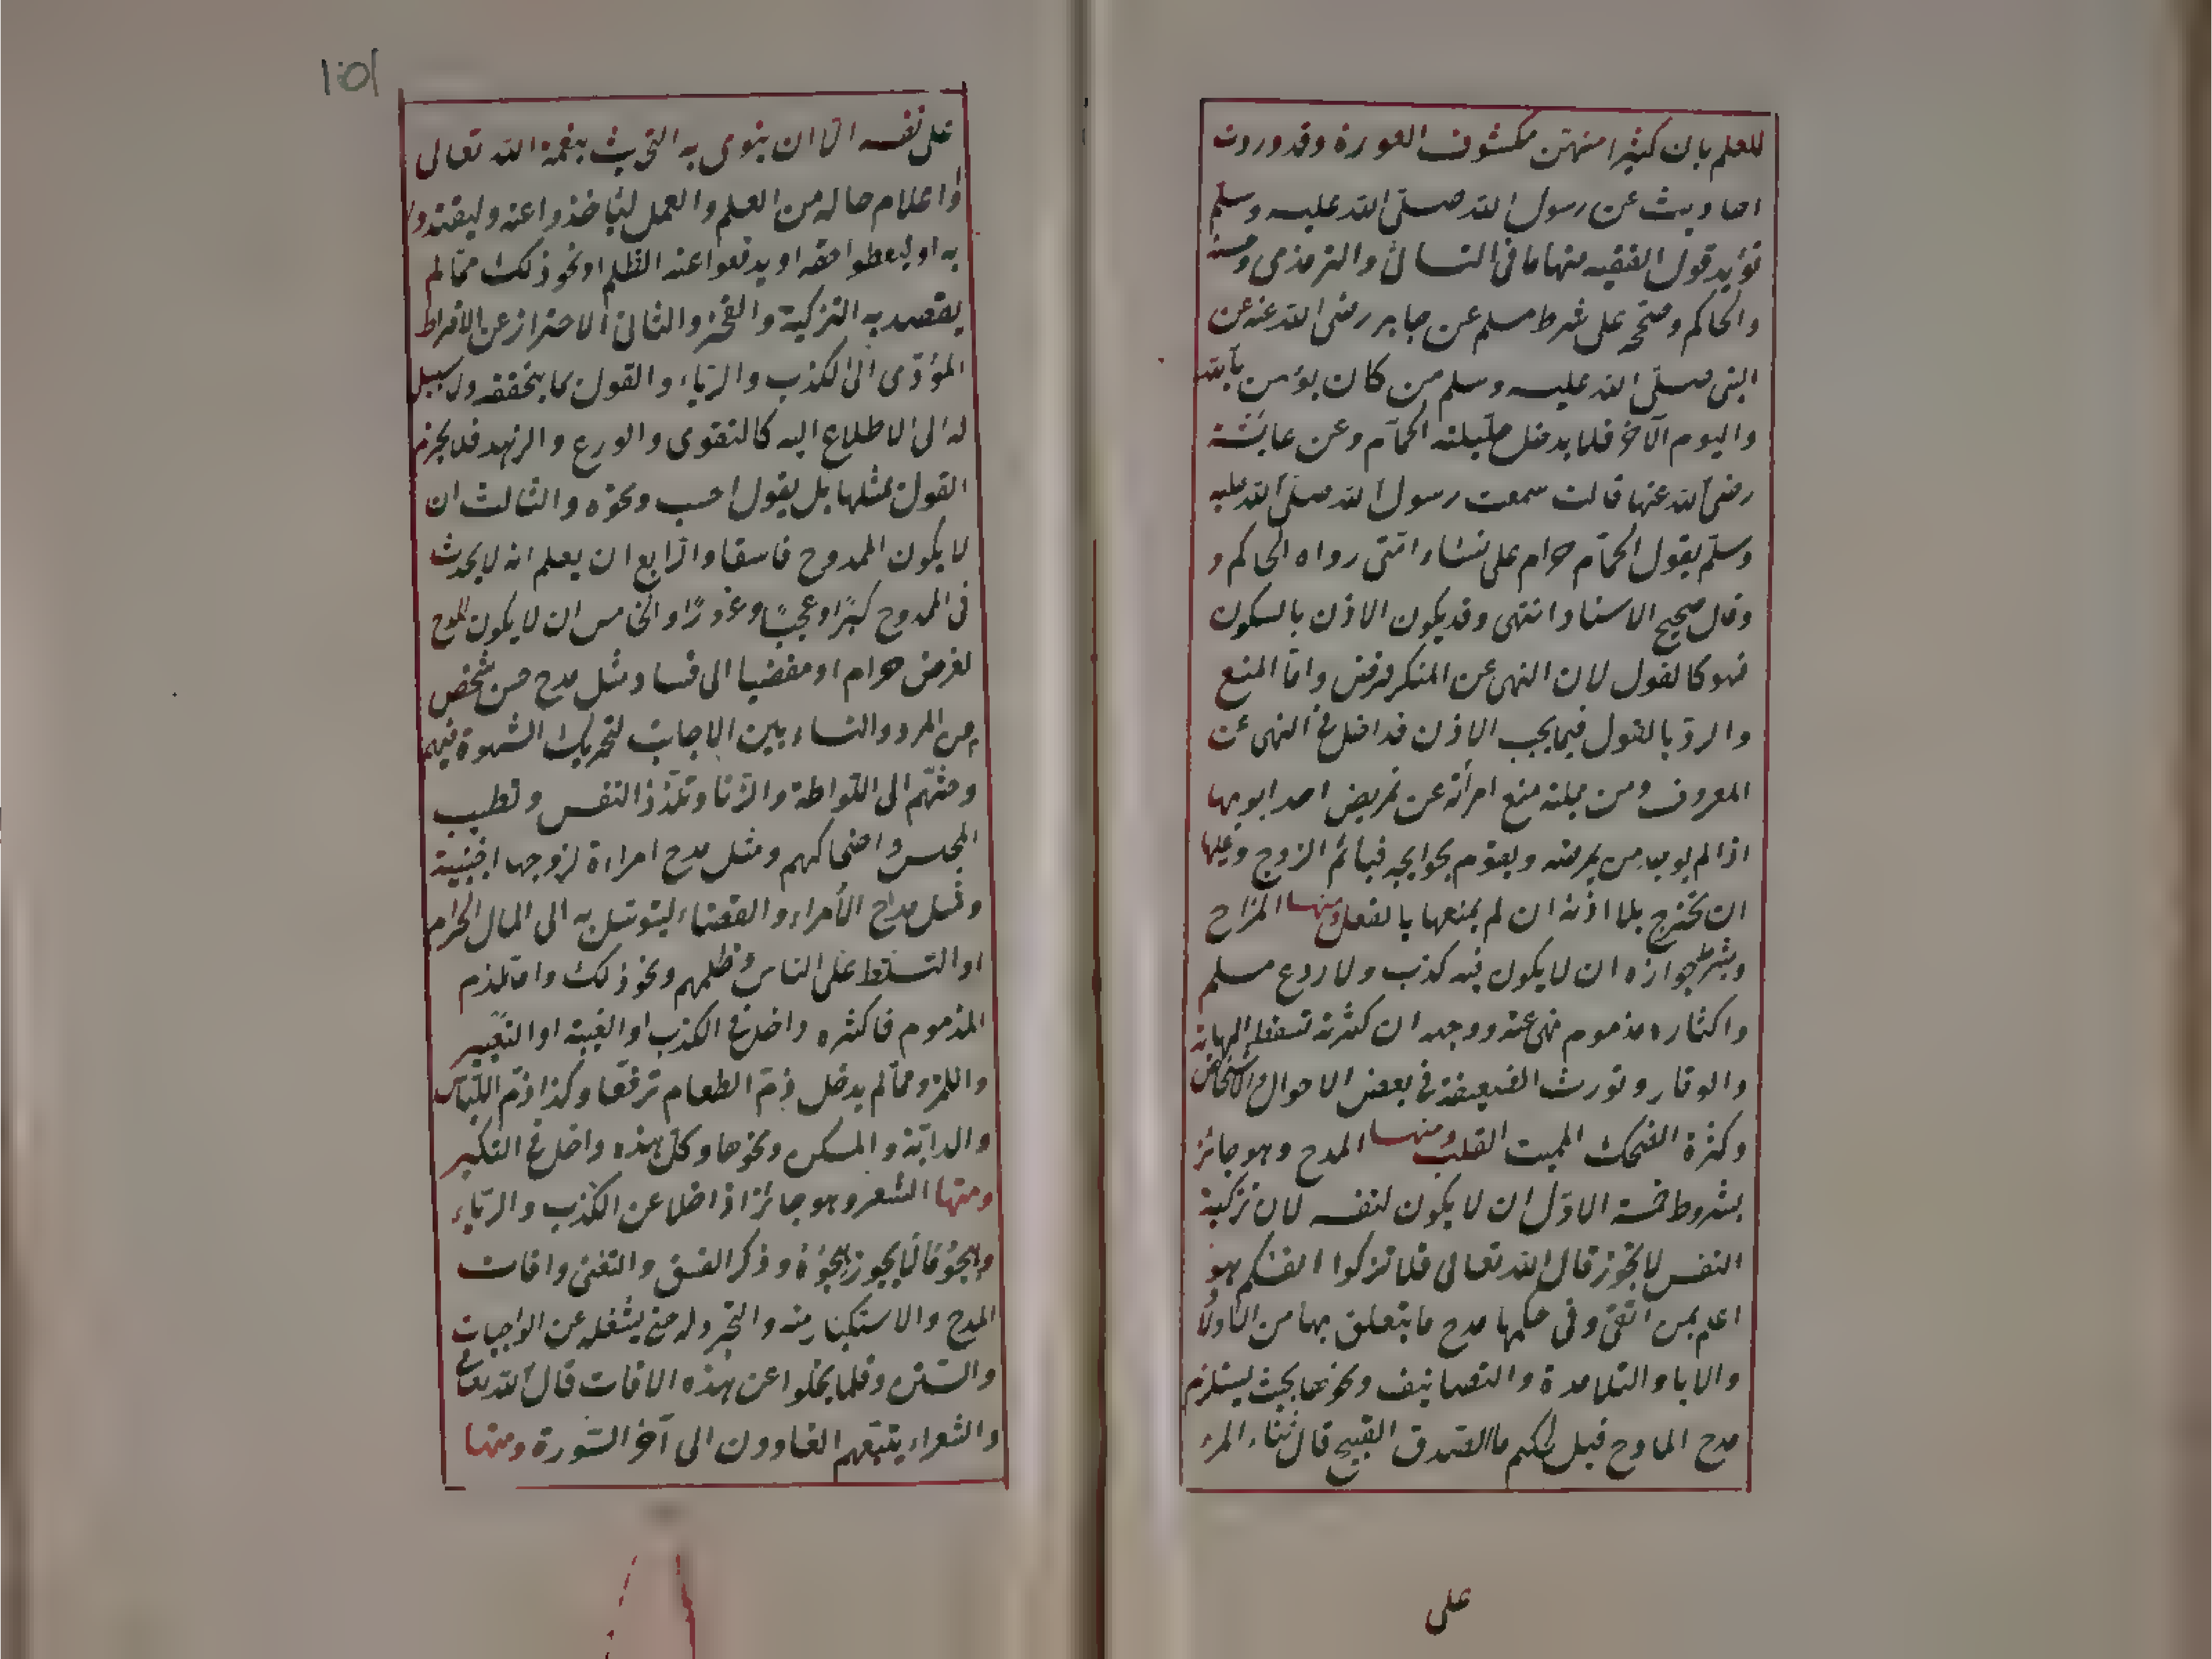 للعلم بان كثيرا منهن مكشوف العورة وقد وردت
احاديث عن رسول الله صلى الله عليه وسلم
تؤيد قول الفقيه منها ما فى النسائى والترمذى وحسنه
والحاكم وصححه على شرط مسلم عن جابر رضى الله عنه عن
النبى صلى الله عليه وسلم من كان يؤمن بالله
واليوم الآخر فلا يدخل حليلته الحمام وعن عايشة
رضى الله عنها قالت سمعت رسول الله صلى الله عليه
وسلم يقول الحمام حرام على نساء امتى رواه الحاكم و
وقال صحيح الاسناد انتهى وقد يكون الاذن بالسكوت
فهو كالقول لان النهى عن المنكر فرض واما المنع
والرد بالقول فيما يجب الاذن فداخل فى النهى عن
المعروف ومن جملته منع امرأته عن تمريض احد ابويها
اذا لم يوجد من يمرضه ويقوم بحوايجه فيأثم الزوج وعليها
ان تخرج بلا اذنه ان لم يمنعها بالفعل ومنها المزاح
وشرط جوازه ان لا يكون فيه كذب ولا روع مسلم
واكثاره مذموم نهى عنه ووجهه ان كثرته تسقط المهابة
والوقار وتورث الضغينة فى بعض الاحوال والاشخاص
وكثرة الضحك المميت القلب ومنها المدح وهو جائز
بشروط خمسة الاول ان لا يكون لنفسه لان تزكية
النفس لا تجوز قال الله تعالى فلا تزكوا انفسكم هو
اعلم بمن اتقى وفى حكمها مدح ما يتعلق بها من الاولاد
والابا والتلامدة والتصانيف ونحوها بحيث يستلزم
مدح المادح قيل لحكيم ما الصدق القبيح قال ثناء المرء
على
١٥١
على نفسه الا ان ينوى به التحديث بنعمة الله تعالى
او اعلام حاله من العلم والعمل ليأخذوا عنه وليقتدوا
به او ليعطوا حقه او يدفعوا عنه الظلم او نحو ذلك مما لم
يقصد به التزكية والفخر والثانى الاحتراز عن الافراط
المؤدى الى الكذب والرياء والقول بما يتحققه ولا سبيل
له الى الاطلاع اليه كالتقوى والورع والزهد فلا يجزم
القول بمثلها بل يقول احسب ونحوه والثالث ان
لا يكون الممدوح فاسقا والرابع ان يعلم انه لا يحدث
فى الممدوح كبرًا وعجبًا وغرورًا والخامس ان لا يكون المدح
لغرض حرام او مفضيا الى فساد مثل مدح حسن شخص
من المرد والنساء بين الاجانب لتحريك الشهوة فيهم
وحثهم الى اللواطة والزنا وتلذذ النفس وتطييب
المجلس واضحاكهم ومثل مدح امراءة لزوجها اجنبية
ومثل مدح الأمراء والقضاء ليتوسل به الى المال الحرام
او التسلط على الناس وظلمهم ونحو ذلك واما الذم
المذموم فاكثره داخل فى الكذب او الغيبة او التعيير
واللمز ومما لم يدخل ذم الطعام ترفعا وكذا ذم اللباس
والدابة والمسكن ونحوها وكل هذه داخل فى التكبر
ومنها الشعر وهو جائز اذا خلا عن الكذب والرياء
وهجو فا لا يجوز هجوه وذكر الفسق والتغنى وافات
المدح والاستكبار منه والتجرد له حتى يشغله عن الواجبات
والسنن وقلما يخلوا عن هذه الافات قال الله تعالى
والشعراء يتبعهم الغاوون الى آخر السورة ومنها